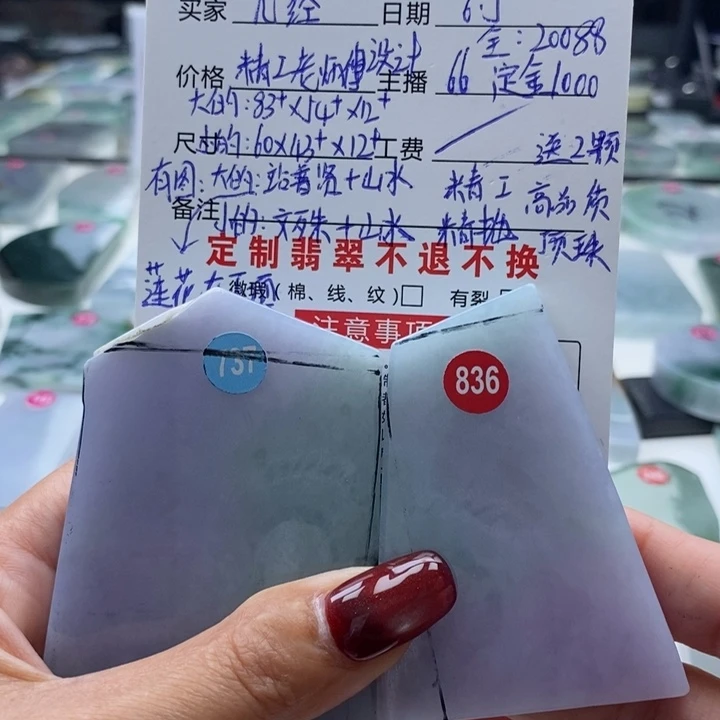 买家 日期
全：20088
价格 精工老师傅设计 主播 66 定金1000
大的：83+×54+×12+
尺寸 小的：60×43+×12+ 工费 送2颗
有图：大的：站普贤+山水 精工 高品质
备注 小的：文殊+山水 精抛 顶珠
定制翡翠不退不换
莲花在下面
(棉、线、纹)□ 有裂
注意事项
737
836